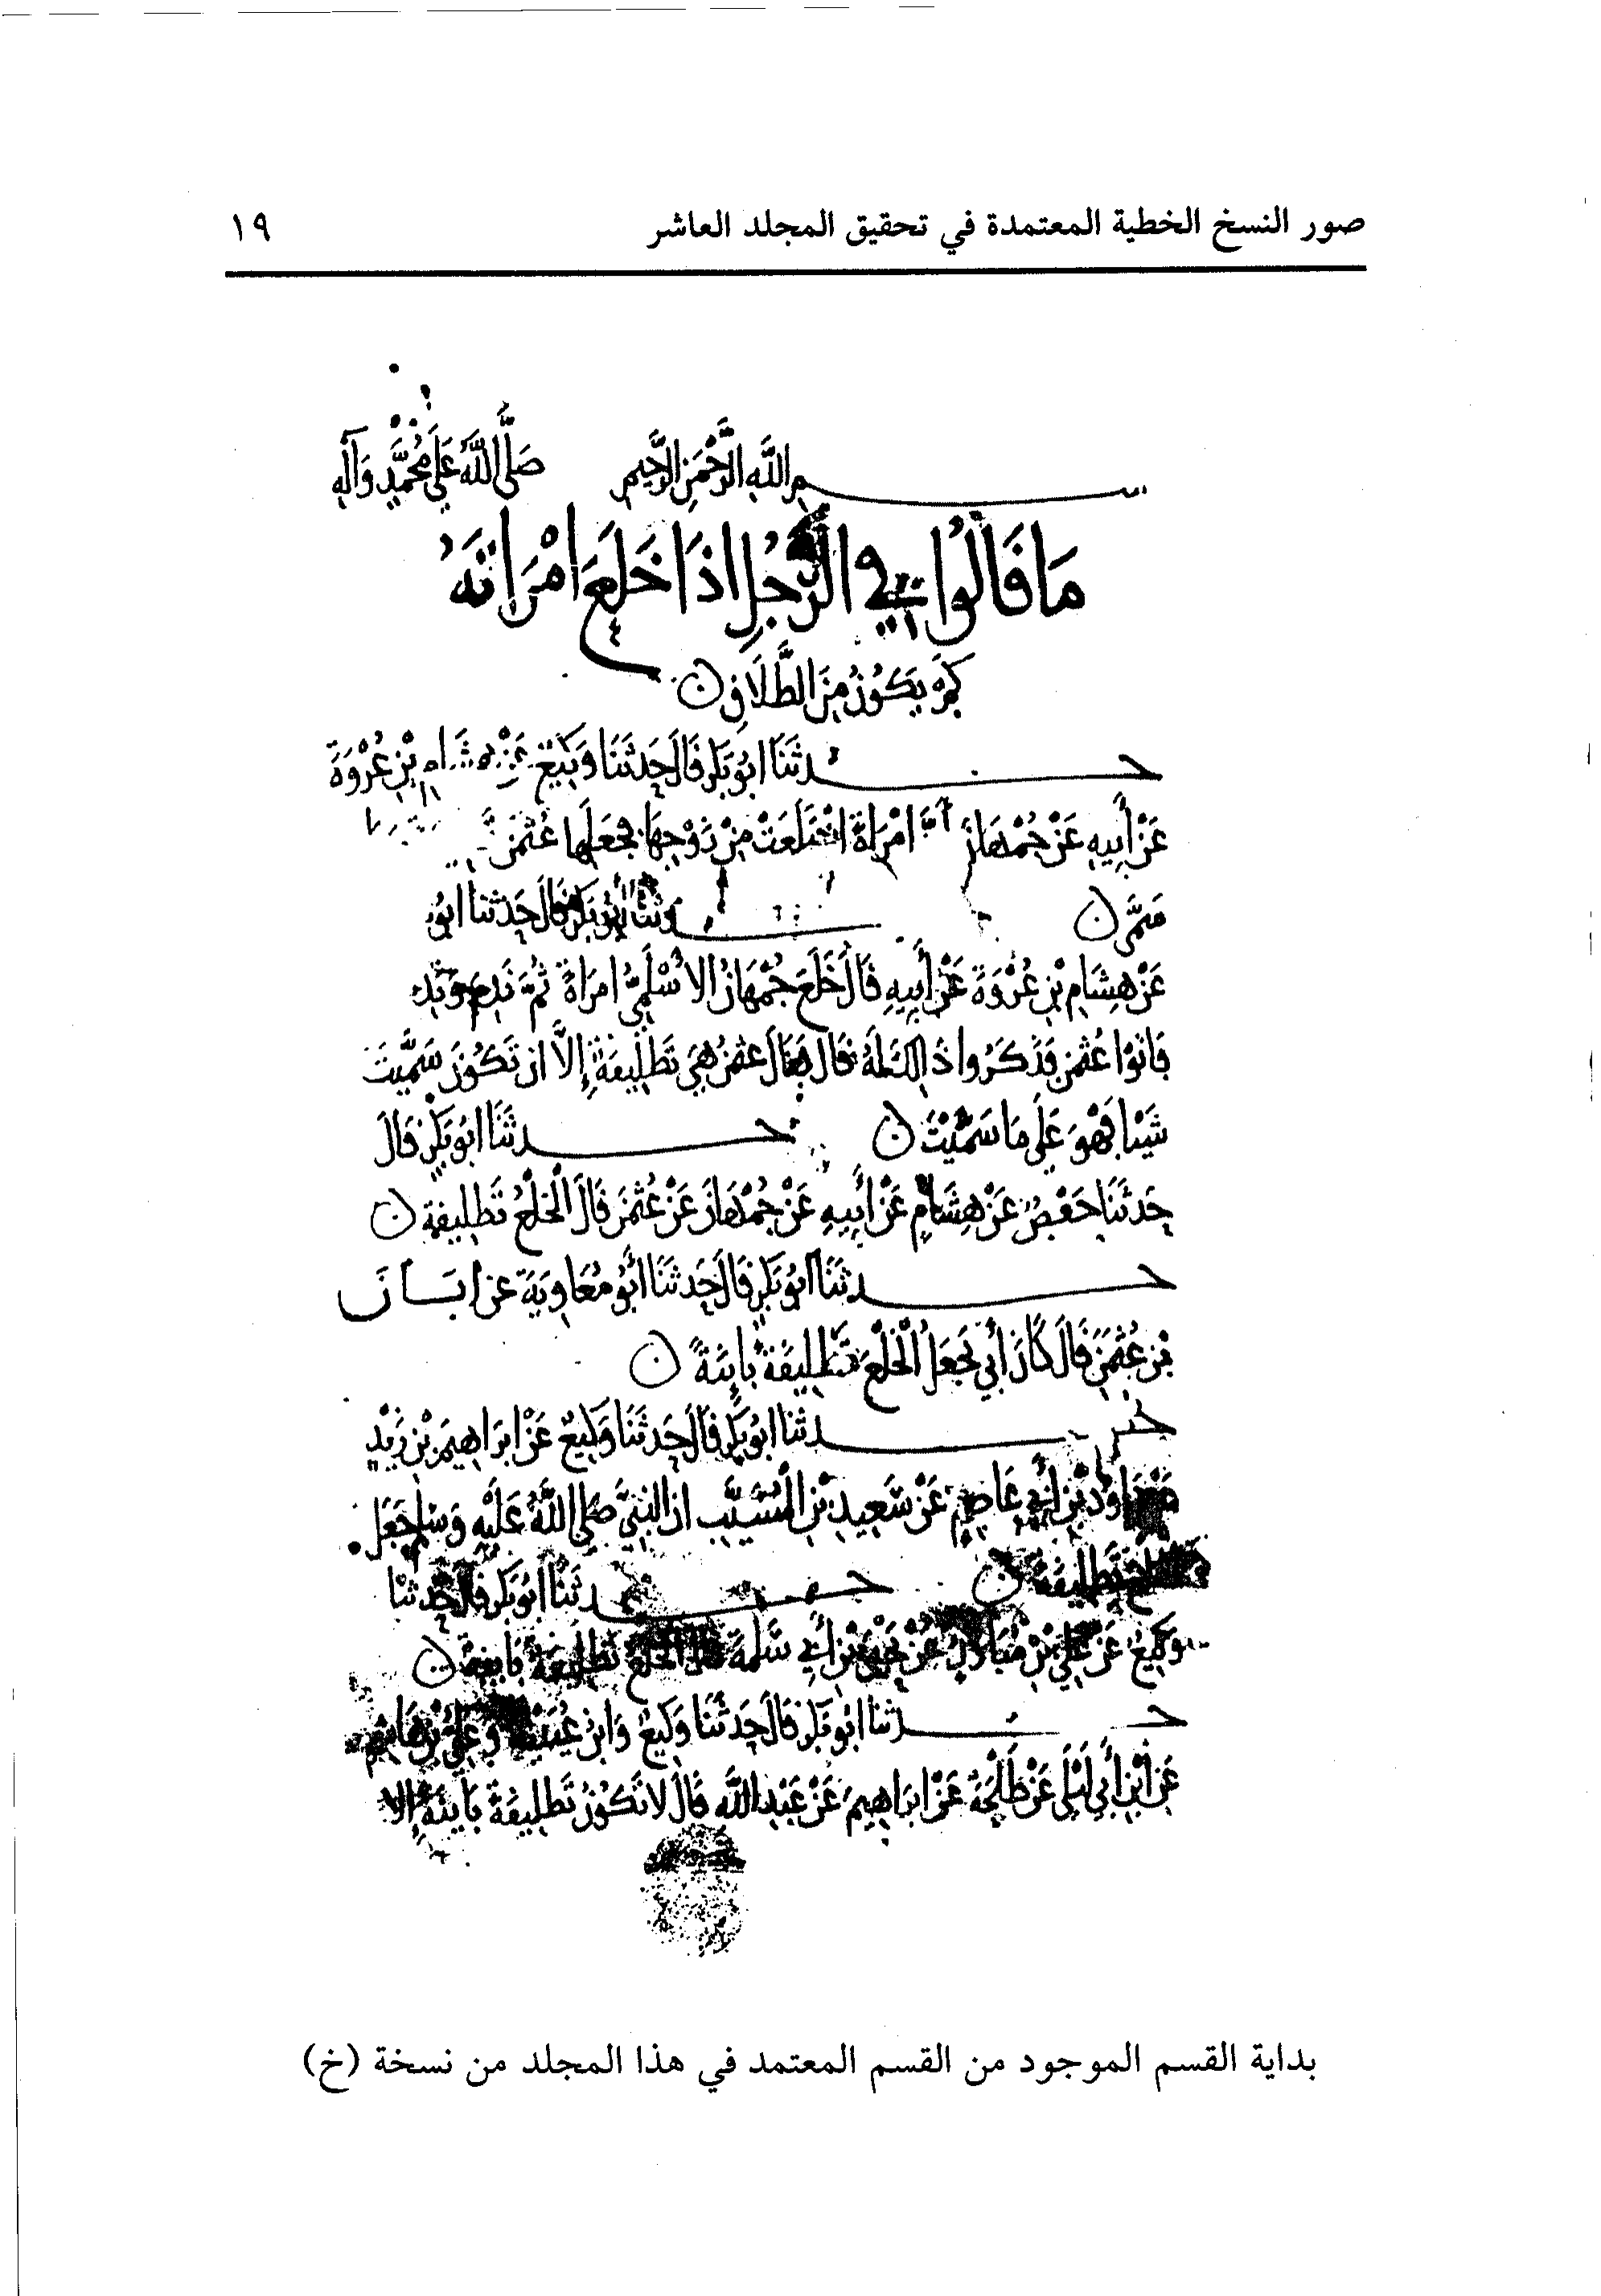 صور النسخ الخطية المعتمدة في تحقيق المجلد العاشر ١٩
بسم الله الرَّحْمَنِ الرَّحِيمِ صَلَّى اللَّهُ عَلَى مُحَمَّدٍ وَآلِهِ
مَا قَالُوا فِي الرَّجُلِ اذَا خَلَعَ امْرَاتَهُ
كَمْ يَكُونُ مِنَ الطَّلَاقِ ن
حدثَنَا ابُو بَكْرٍ قَالَ حَدثَنَا وَكِيعٌ عَنْ هِشَامِ بْنِ عُرْوَةَ
عَنْ أَبِيهِ عَنْ جُمْهَانَ أَنَّ امْرَاةً اخْتَلَعَتْ مِنْ زَوْجِهَا فَجَعَلَهَا عُثْمَنُ
سَمَّى ن حدثنا أبو بكر قَالَ حَدثنا ابُو
عَنْ هِشَامِ بْنِ عُرْوَةَ عَنْ أَبِيهِ قَالَ خَلَعَ جُمْهَانُ الاسْلَمِيُّ امرَاةً ثُمَّ نَدِمَ
فَاتَوْا عُثْمَنَ فَذَكَرُوا ذَالكَ لَهُ فقَالَ عُثمَنُ هِيَ تَطْلِيقَةٌ إِلَّا ان تَكُونَ سَمَّيْتَ
شَيْئا فَهُوَ عَلَى مَا سَمَّيْتَ ن حدثَنَا ابُو بَكْرٍ قَالَ
حَدثَنَا حَفْصٌ عَنْ هِشَامٍ عَنْ أَبِيهِ عَنْ جُمْهَانَ عَنْ عُثْمَنَ قَالَ الْخُلْعُ تَطْلِيقَة ن
حدثَنَا ابُو بَكْرٍ قَالَ حَدثَنَا أَبُو مُعَاوِيَةَ عن ابَانَ
بْنِ عُثْمَنَ قَالَ كَانَ أَبِي يَجْعَلُ الْخُلْعَ تَطْلِيقَةً بَايِنَةً ن
حدثنا ابُو بَكْرٍ قَالَ حَدثَنَا وَكِيعٌ عَنْ ابرَاهِيمَ بْنِ يَزِيْدَ
عَنْ دَاوُدَ بْنِ أَبِي عَاصِمٍ عَنْ سَعِيدِ بْنِ الْمُسَيَّبِ ان النبيَّ صَلَّى اللَّهُ عَلَيْهِ وَسَلم جَعَلَ
الخلع تَطْلِيقَة ن حدثَنَا ابُو بَكْرٍ قَالَ حَدثنا
وَكِيعٌ عَنْ عَلِيِّ بْنِ مُبَارَكٍ عَنْ يَحْيَى بْنِ أَبِي سَلَمَةَ قال الخُلْعُ تَطْلِيقَةٌ بَايِنَة ن
حدثنا ابُو بَكْرٍ قَالَ حَدثَنَا وَكِيعٌ وَابْنُ عُيَيْنَةَ وَعَلِيُّ بْنُ هَاشِمٍ
عَنِ ابْنِ أَبِي لَيْلَى عَنْ طَلْحَةَ عَنْ ابرَاهِيمَ عَنْ عَبْدِ اللَّهِ قَالَ لا تَكُونُ تَطْلِيقَةٌ بَايِنَةٌ إِلا
بداية القسم الموجود من القسم المعتمد في هذا المجلد من نسخة (خ)